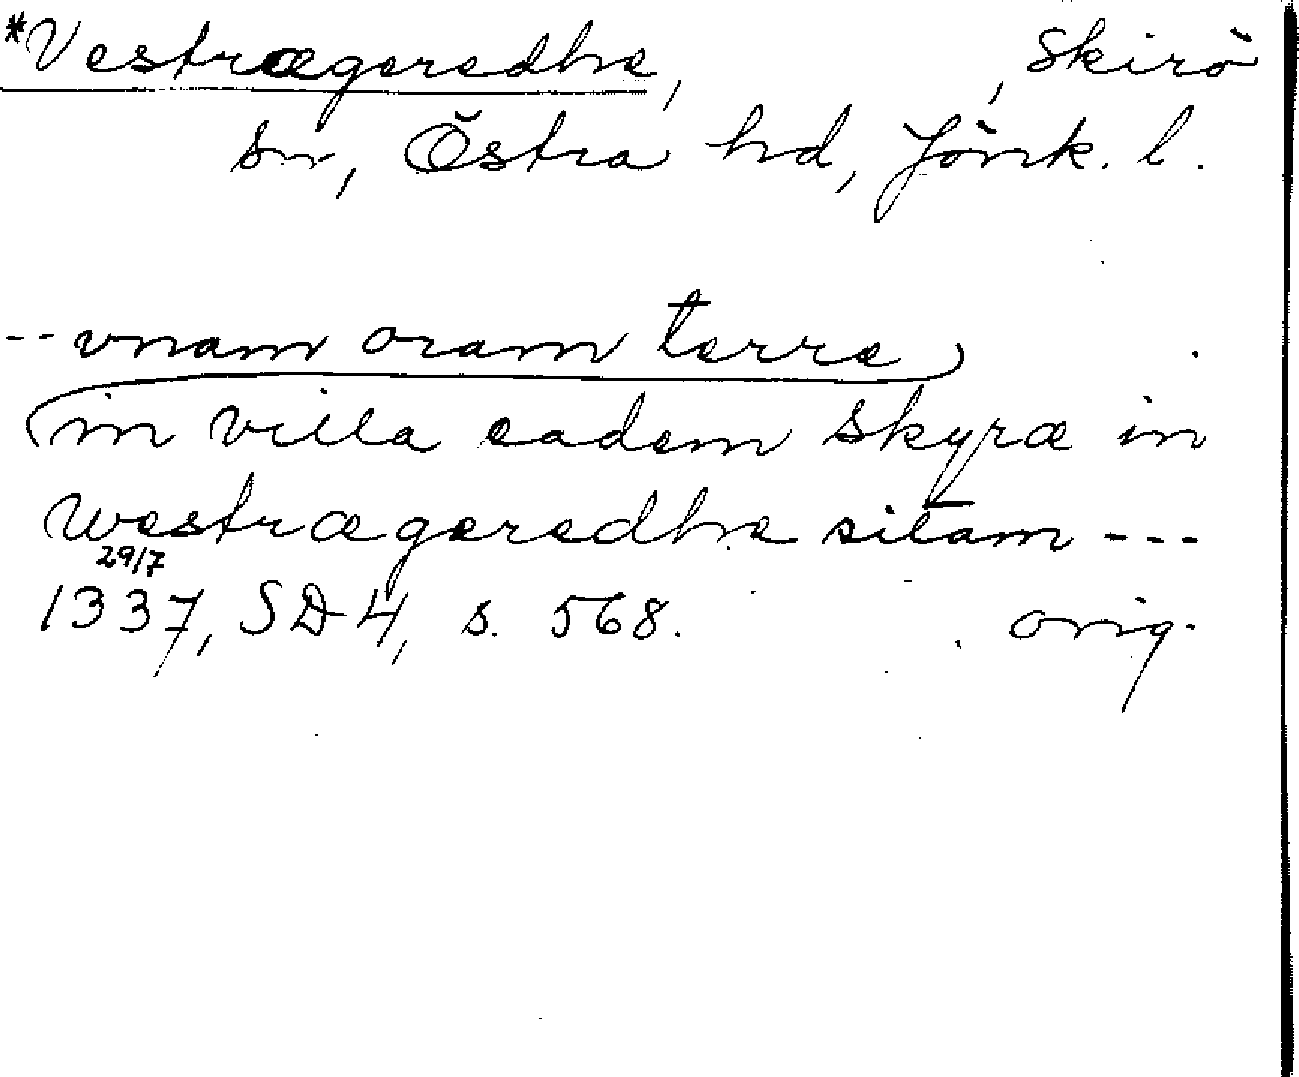 *Vestrægeredhe,          , Skirö
sn, Östra hd, Jönk. l.
-- vnam oram terre
in villa eadem Skyræ in
Westrægeredhe sitam ---
29/7
1337, SD 4, s. 568.          orig.